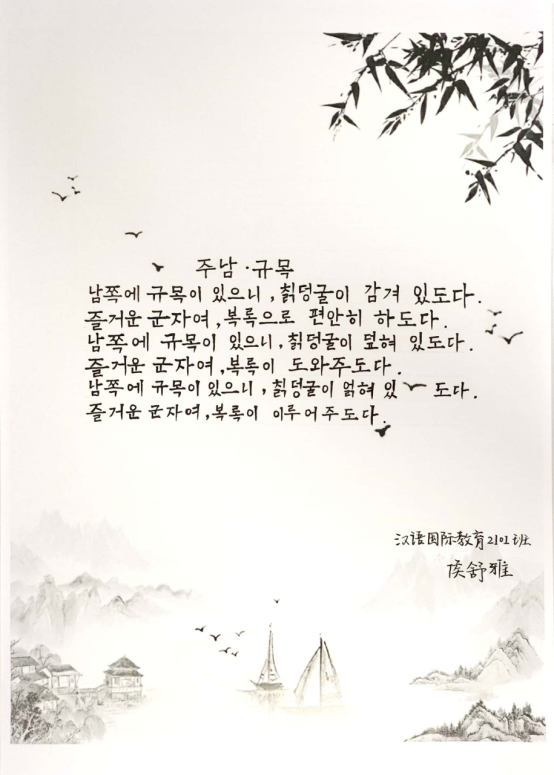 주남·규목
남쪽에 규목이 있으니,칡덩굴이 감겨 있도다.
즐거운 군자여,복록으로 편안히 하도다.
남쪽에 규목이 있으니,칡덩굴이 덮혀 있도다.
즐거운 군자여,복록이 도와주도다.
남쪽에 규목이 있으니,칡덩굴이 얽혀 있 도다.
즐거운 군자여,복록이 이루어주도다.
汉语国际教育2101班
侯舒雅